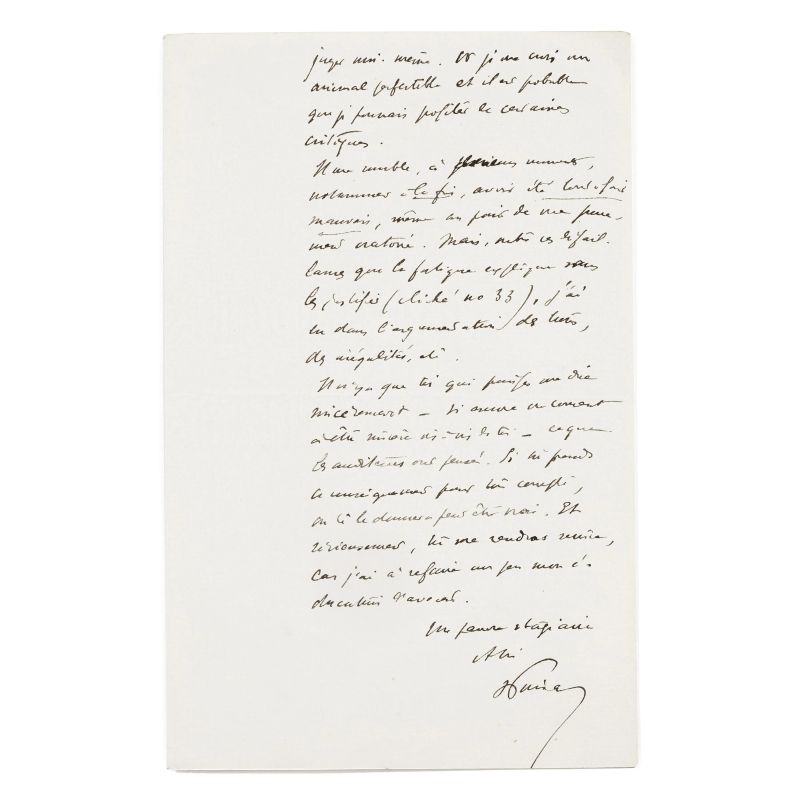 juger moi-même. Or je me crois un
animal perfectible et il est probable
que je pourrais profiter de certaines
critiques.
Il me semble, à plusieurs moments,
notamment à la fin, avoir été tout à fait
mauvais, même au point de vue pure-
ment oratoire. Mais, outre ces défail-
lances que la fatigue explique sans
les justifier (cliché no 33), j'ai
eu dans l'argumentation des trous,
des inégalités, etc.
Il n'y a que toi qui puisses me dire
sincèrement – si encore on consent
à être sincère vis-à-vis de toi – ce que
les auditeurs ont pensé. Si tu prends
ce renseignement pour ton compte,
on te le donnera peut être vrai. Et
sérieusement, tu me rendras service,
car j'ai à refaire un peu mon é-
ducation d'avocat.
Un pauvre stagiaire